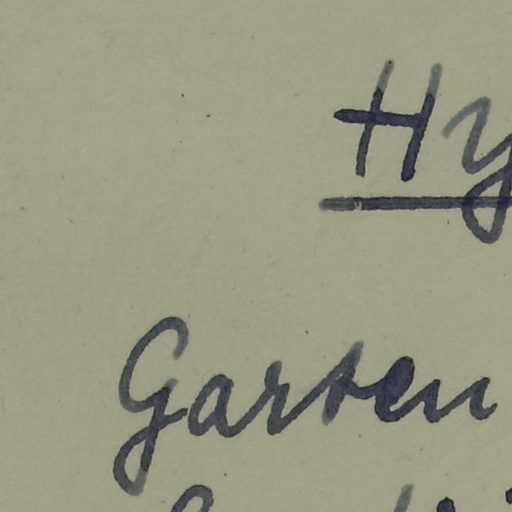 Hy
Garten